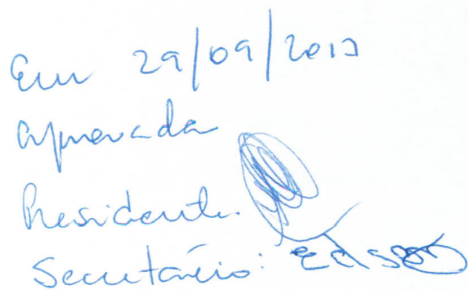 Em 29/09/2017
aprovada
Presidente.
Secretário: Edson